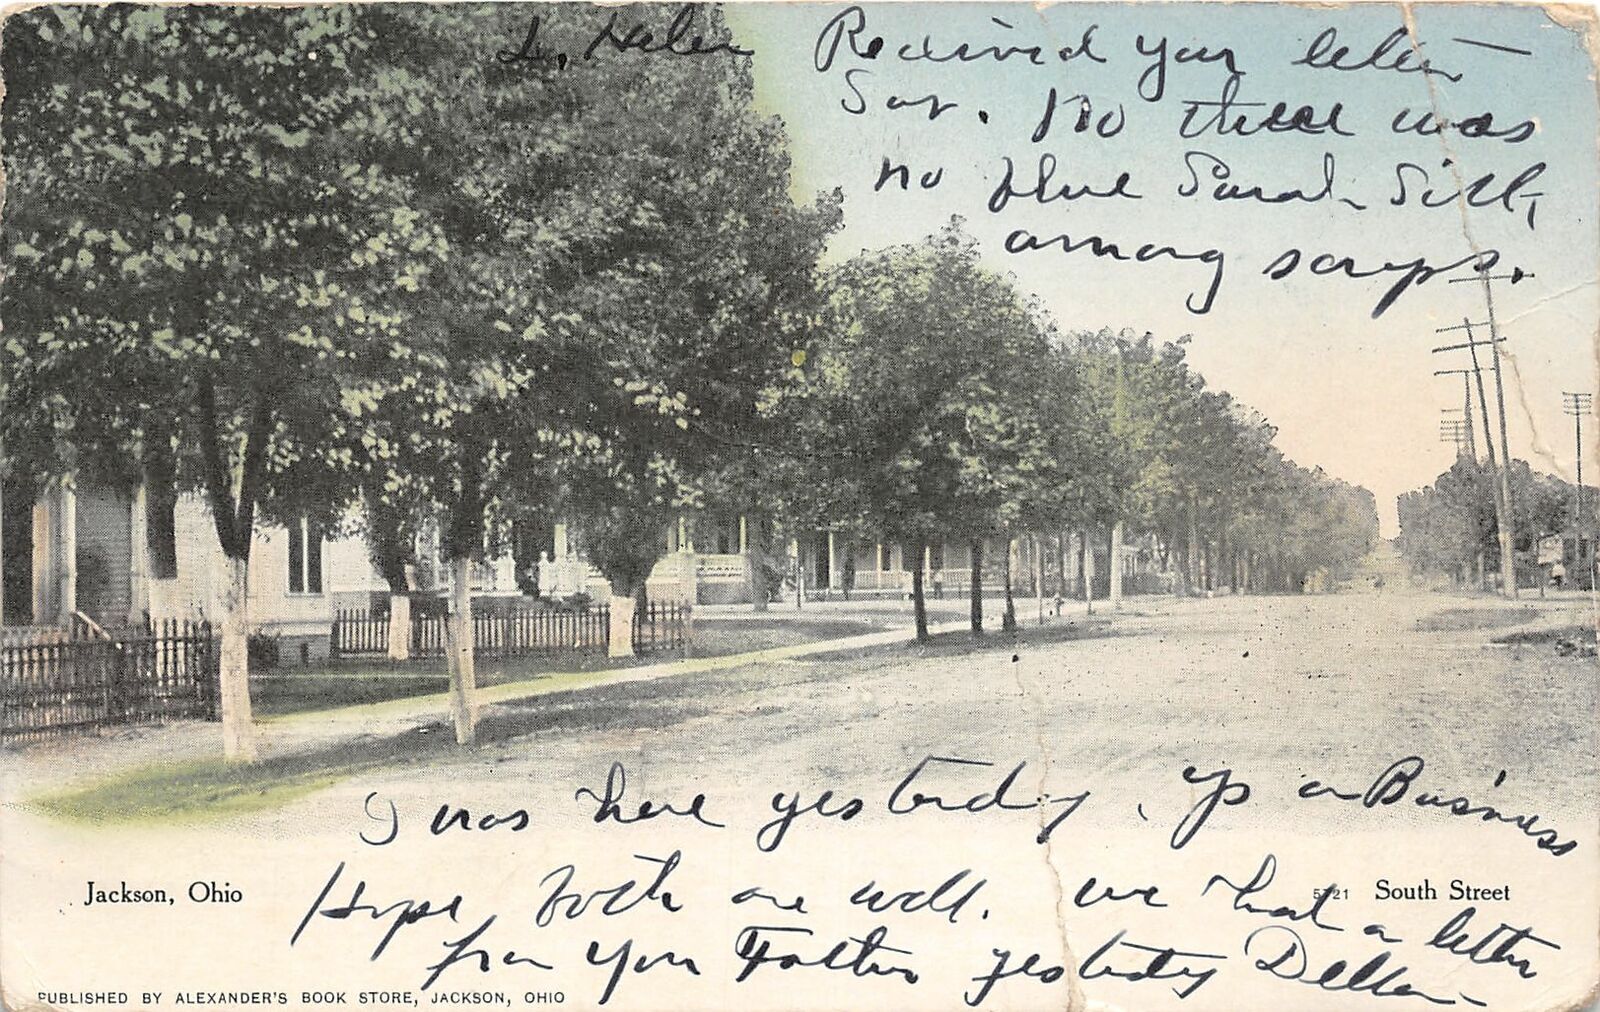 L. Helen Received your letter
Sat. No there was
no blue Sarah Silk,
among scraps.
I was here yesterday, up on Business
Hope both are well. we had a letter
from your Father yesterday Della
Jackson, Ohio
5721 South Street
PUBLISHED BY ALEXANDER'S BOOK STORE, JACKSON, OHIO